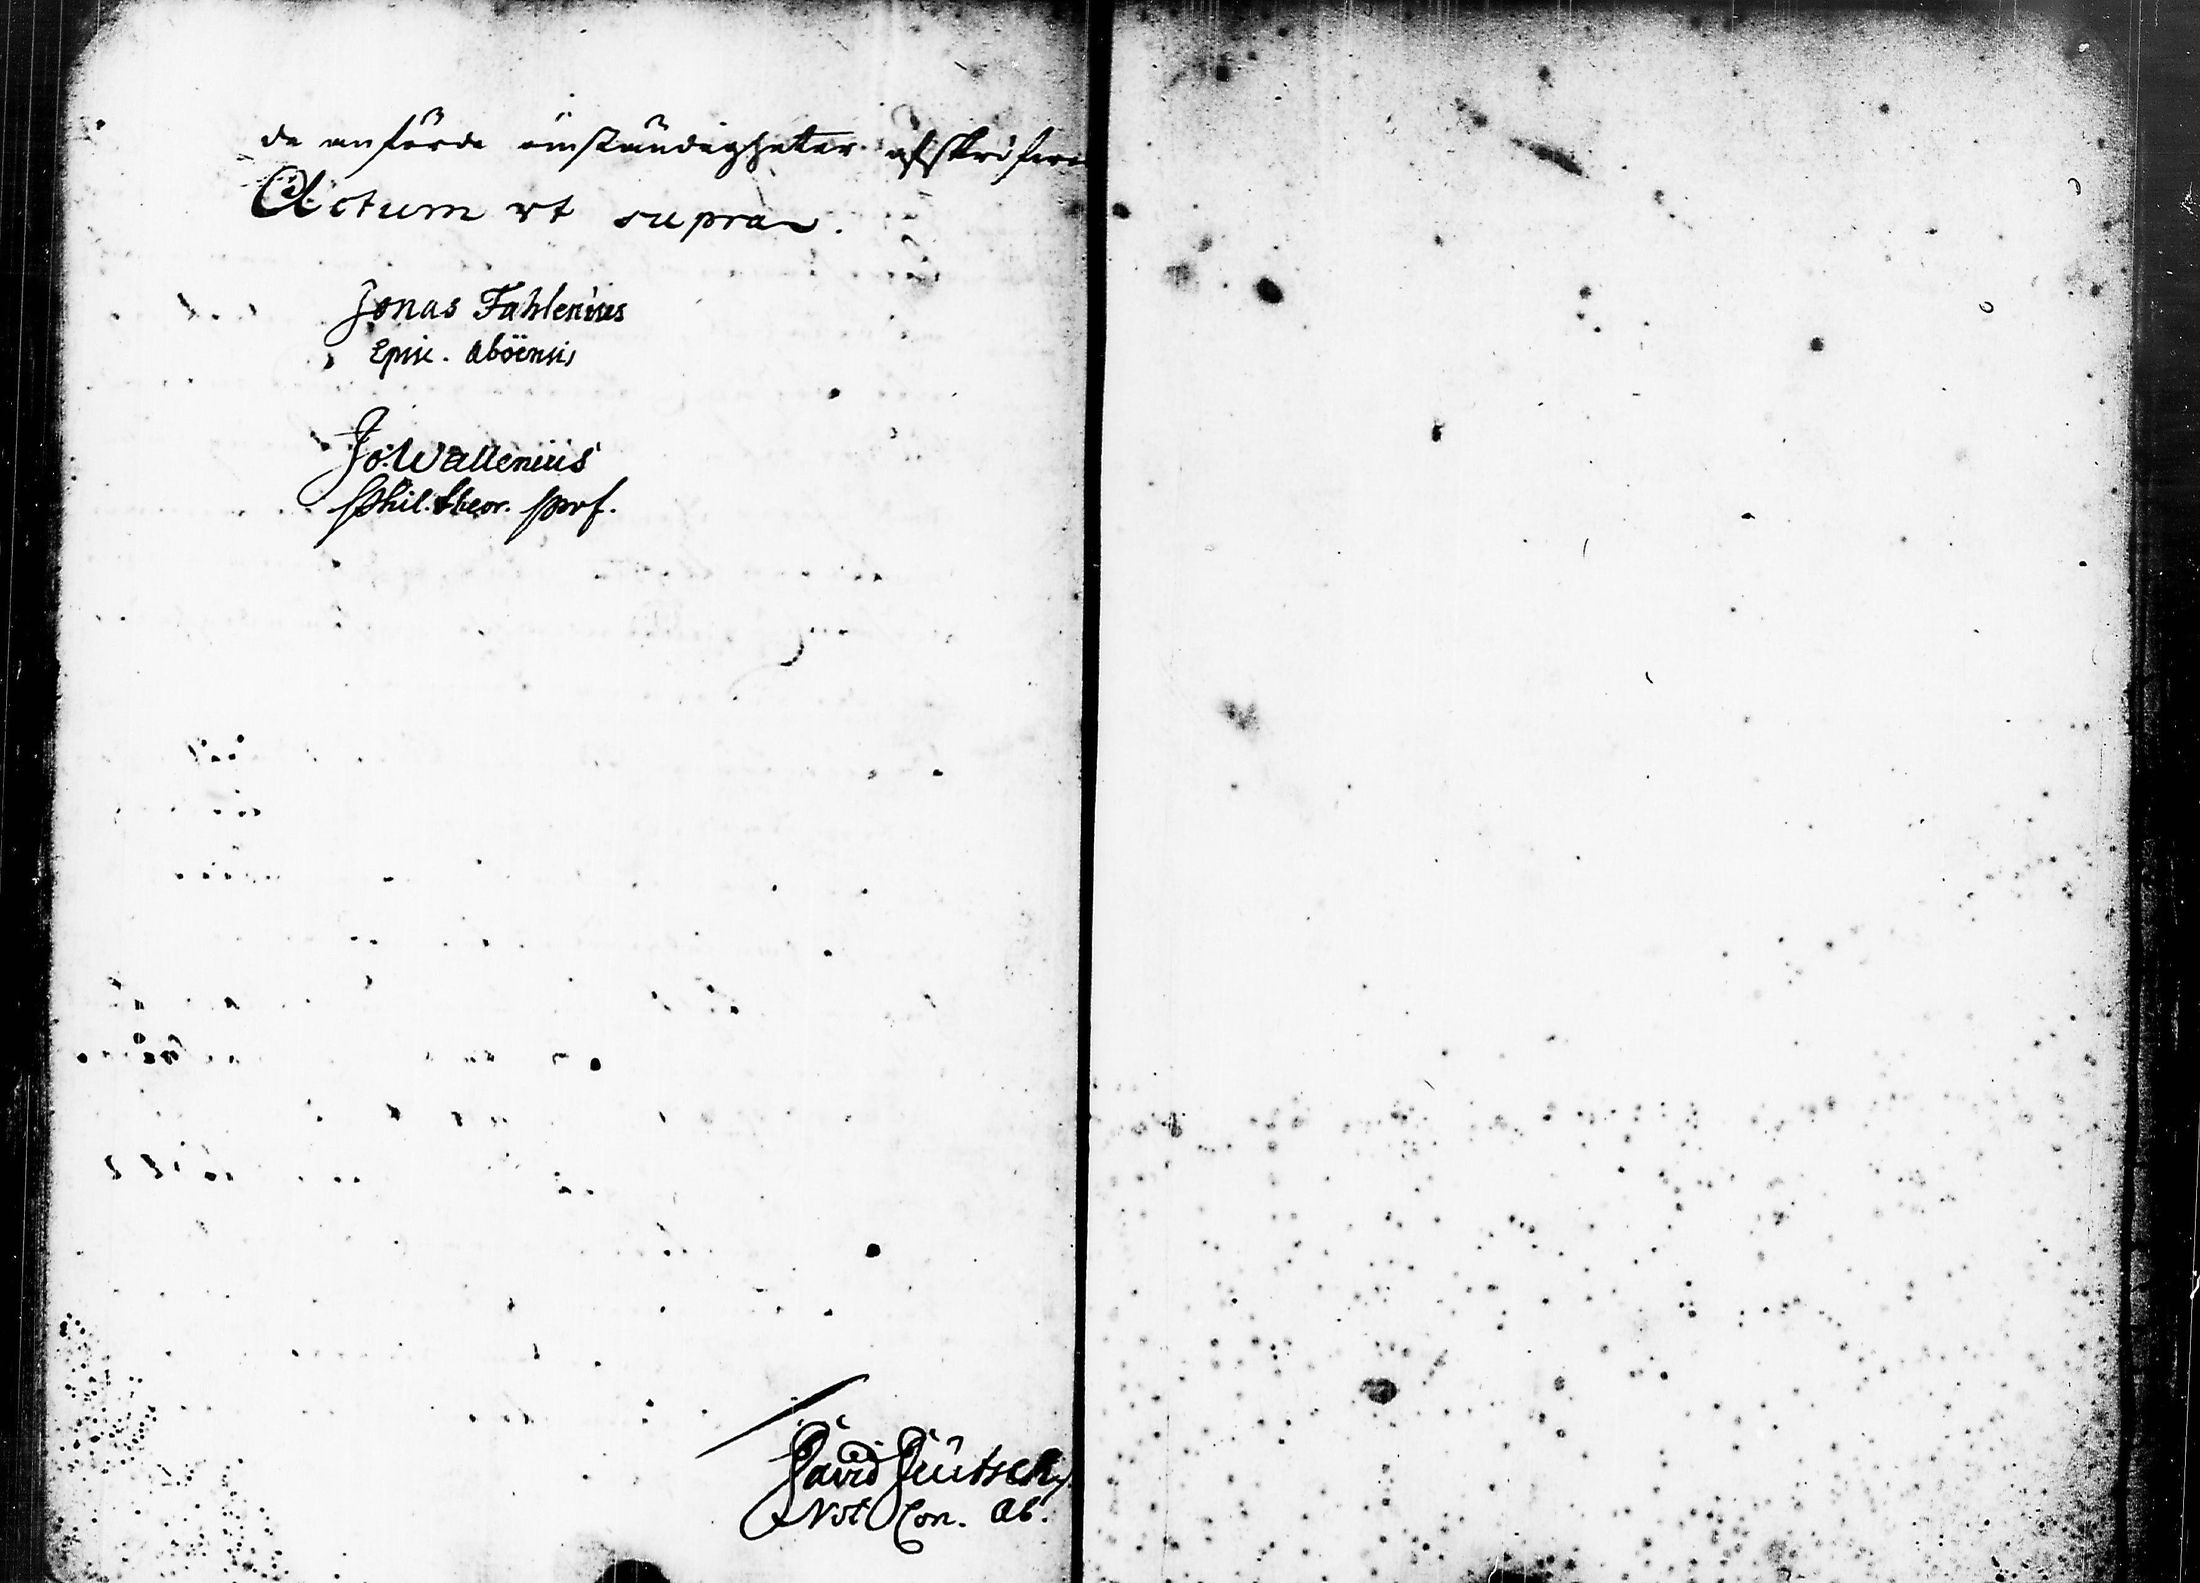 de anförde omständigheter afskrifva
Actum vt supra.
Jonas Fahlenius
Episc. Aböensis
Jo: Wallenius
Phil. theor. Prof.
David Deutsch
Not Con. Ab.